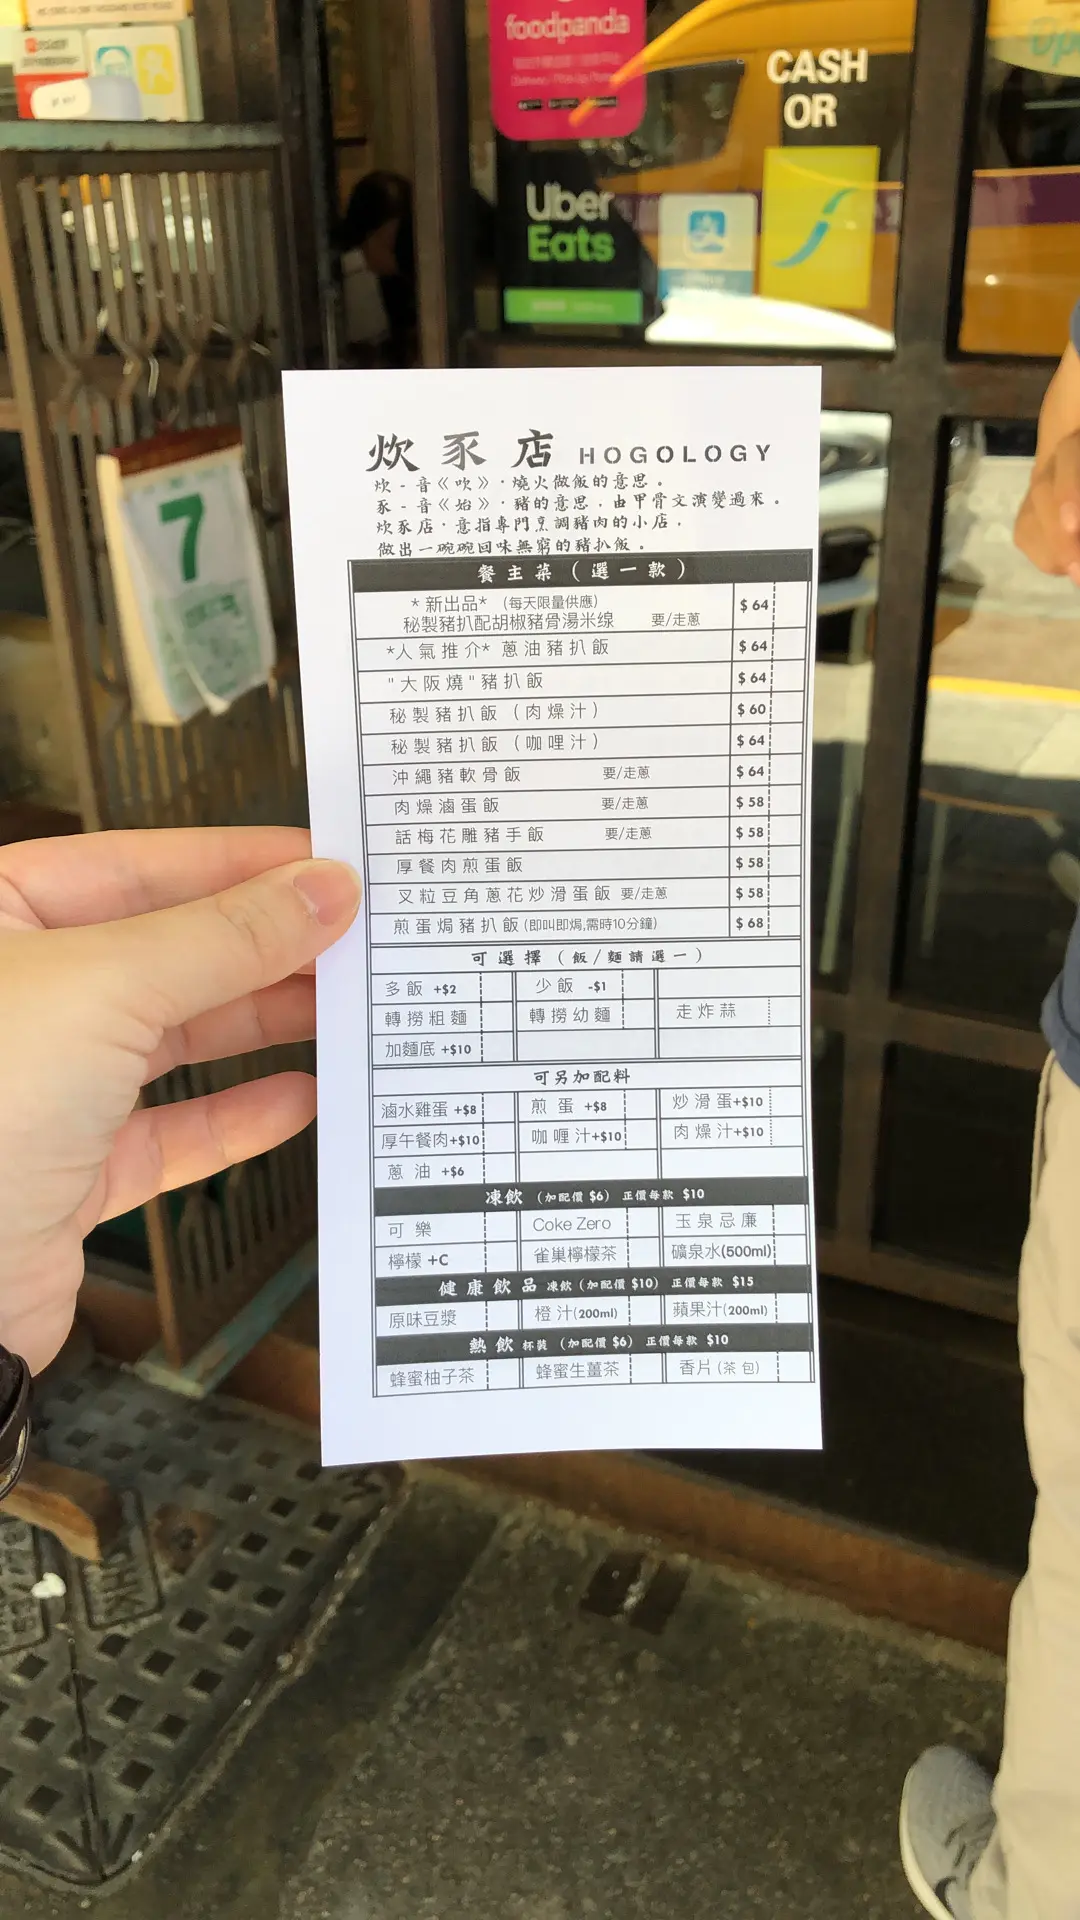 foodpanda
CASH
OR
Uber
Eats
7
炊豕店 HOGOLOGY
炊 - 音《吹》‧燒火做飯的意思。
豕 - 音《始》‧豬的意思﹐由甲骨文演變過來。
炊豕店‧意指專門烹調豬肉的小店﹐
做出一碗碗回味無窮的豬扒飯。
餐主菜(選一款)
*新出品* (每天限量供應)
秘製豬扒配胡椒豬骨湯米线 要/走蔥 $64
*人氣推介* 蔥油豬扒飯 $64
"大阪燒"豬扒飯 $64
秘製豬扒飯(肉燥汁) $60
秘製豬扒飯(咖哩汁) $64
沖繩豬軟骨飯 要/走蔥 $64
肉燥滷蛋飯 要/走蔥 $58
話梅花雕豬手飯 要/走蔥 $58
厚餐肉煎蛋飯 $58
叉粒豆角蔥花炒滑蛋飯 要/走蔥 $58
煎蛋焗豬扒飯(即叫即焗,需時10分鐘) $68
可選擇(飯/麵請選一)
多飯 +$2 少飯 -$1
轉撈粗麵 轉撈幼麵 走炸蒜
加麵底 +$10
可另加配料
滷水雞蛋 +$8 煎蛋 +$8 炒滑蛋+$10
厚午餐肉+$10 咖喱汁+$10 肉燥汁+$10
蔥油 +$6
凍飲 (加配價 $6) 正價每款 $10
可樂 Coke Zero 玉泉忌廉
檸檬 +C 雀巢檸檬茶 礦泉水(500ml)
健康飲品 凍飲(加配價 $10) 正價每款 $15
原味豆漿 橙汁(200ml) 蘋果汁(200ml)
熱飲 杯裝 (加配價 $6) 正價每款 $10
蜂蜜柚子茶 蜂蜜生薑茶 香片(茶包)